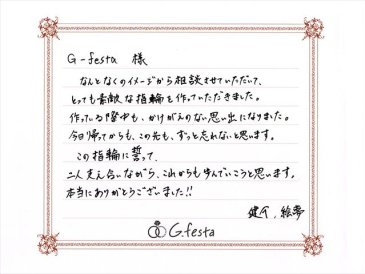 G-festa 様
なんとなくのイメージから相談させていただいて、
とっても素敵な指輪を作っていただきました。
作っている途中も、かけがえのない思い出になりました。
今日帰ってからも、この先も、ずっと忘れないと思います。
この指輪に誓って、
二人支え合いながら、これからも歩んでいこうと思います。
本当にありがとうございました!!
健介、絵夢
G.festa